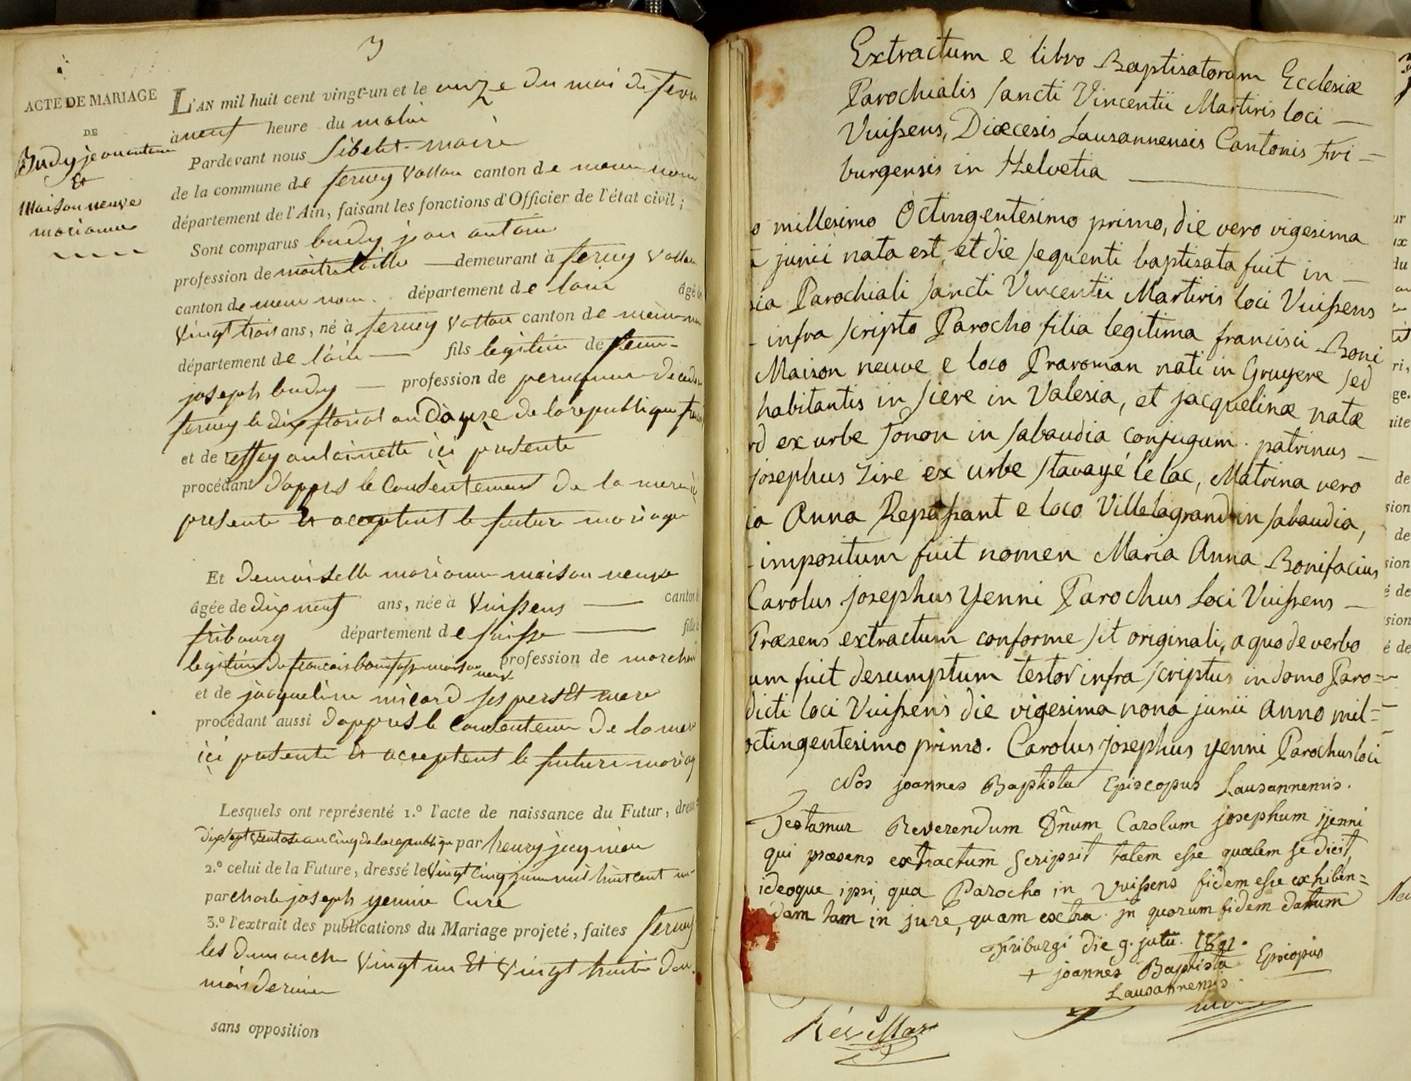 3
ACTE DE MARIAGE
DE
Budy jean antoine
Et
Maison neuve
marianne
L'AN mil huit cent vingt-un et le onze du mois de fevr
a neuf heure du matin
Pardevant nous Sibelet maire
de la commune de ferney Voltaire canton de meme nom
département de l'Ain, faisant les fonctions d'Officier de l'état civil ;
Sont comparus budy jean antoine
profession de demeurant à ferney Voltaire
canton de meme nom département de lain âgé
Vingt trois ans, né à ferney Voltaire canton de meme nom
département de l'ain fils legitime de
joseph budy profession de
ferney le dix floréal an Douze de la republique
et de antoinette ici presente
procédant d'appres le Consentement de la mere
presente et acceptent le futur mariage
Et Demoiselle marianne maison neuve
âgée de dix neuf ans, née à Vuissens canton
fribourg département de Suisse fille
legitime de francois boniface maison neuve profession de marchan
et de jacqueline micard ses pere Et mere
procédant aussi d'appres le Consentement De la mere
ici presente et acceptent le futur mariag
Lesquels ont représenté 1.º l'acte de naissance du Futur, dres
dix sept ventose an cinq de la republique par henry jacquinou
2.º celui de la Future, dressé le Vingt cinq juin mil huit cent un
par charle joseph yennie Curé
3.º l'extrait des publications du Mariage projeté, faites ferney
les dimanche Vingt un Et Vingt huit du
mois dernier
sans opposition
Extractum e libro Baptisatorum Ecclesiæ
Parochialis Sancti Vincentii Martiris loci
Vuissens, Diœcesis Lausannensis Cantonis Fri=
burgensis in Helvetia
o millesimo Octingentesimo primo, die vero vigesima
junii nata est, et die sequenti baptisata fuit in
sia Parochiali Sancti Vincentii Martiris loci Vuissens
infra scripto Parocho filia legitima francisci Boni
Maison neuve e loco Praroman nati in Gruyere sed
habitantis in siere in Valesia, et jacquelinæ natæ
rd ex urbe Tonon in Sabaudia conjugum. patrinus
josephus Zire ex urbe stavayé le lac, Matrina vero
ia Anna Repassant e loco Villelagrand in Sabaudia,
impositum fuit nomen Maria Anna Bonifacius
Carolus josephus yenni Parochus Loci Vuissens
Præsens extractum conforme sit originali, a quo de verbo
um fuit desumptum testor infra scriptus in domo Paro=
dicti loci Vuissens die vigesima nona junii anno mil=
octingentesimo primo. Carolus josephus yenni Parochus loci
Nos joannes Baptista Episcopus Lausannensis.
Testamur Reverendum Dnum Carolum josephum yenni
qui præsens extractum scripsit talem esse qualem se dicit,
ideoque ipsi, qua Parocho in Vuissens fidem esse exhiben=
dam tam in jure, quam extra. in quorum fidem datum
Friburgi die 9. julii. 1801.
+ joannes Baptista Episcopus
Lausannensis